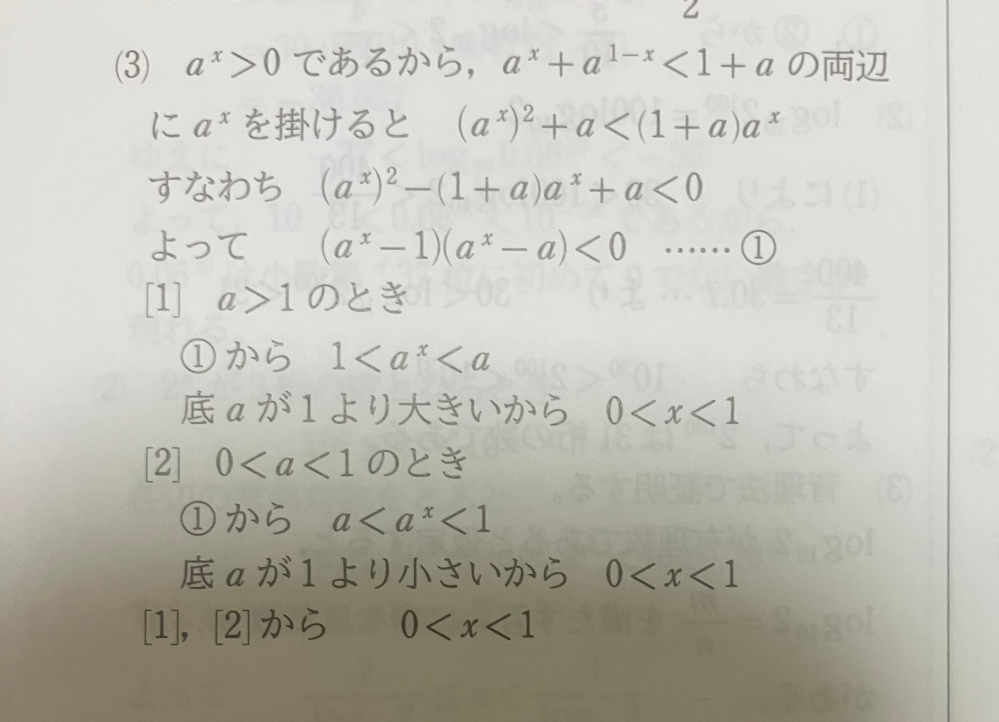 2
(3) a^x>0 であるから，a^x+a^{1-x}<1+a の両辺
に a^x を掛けると (a^x)^2+a<(1+a)a^x
すなわち (a^x)^2-(1+a)a^x+a<0
よって (a^x-1)(a^x-a)<0 ……①
[1] a>1 のとき
①から 1<a^x<a
底 a が 1 より大きいから 0<x<1
[2] 0<a<1 のとき
①から a<a^x<1
底 a が 1 より小さいから 0<x<1
[1]，[2] から 0<x<1